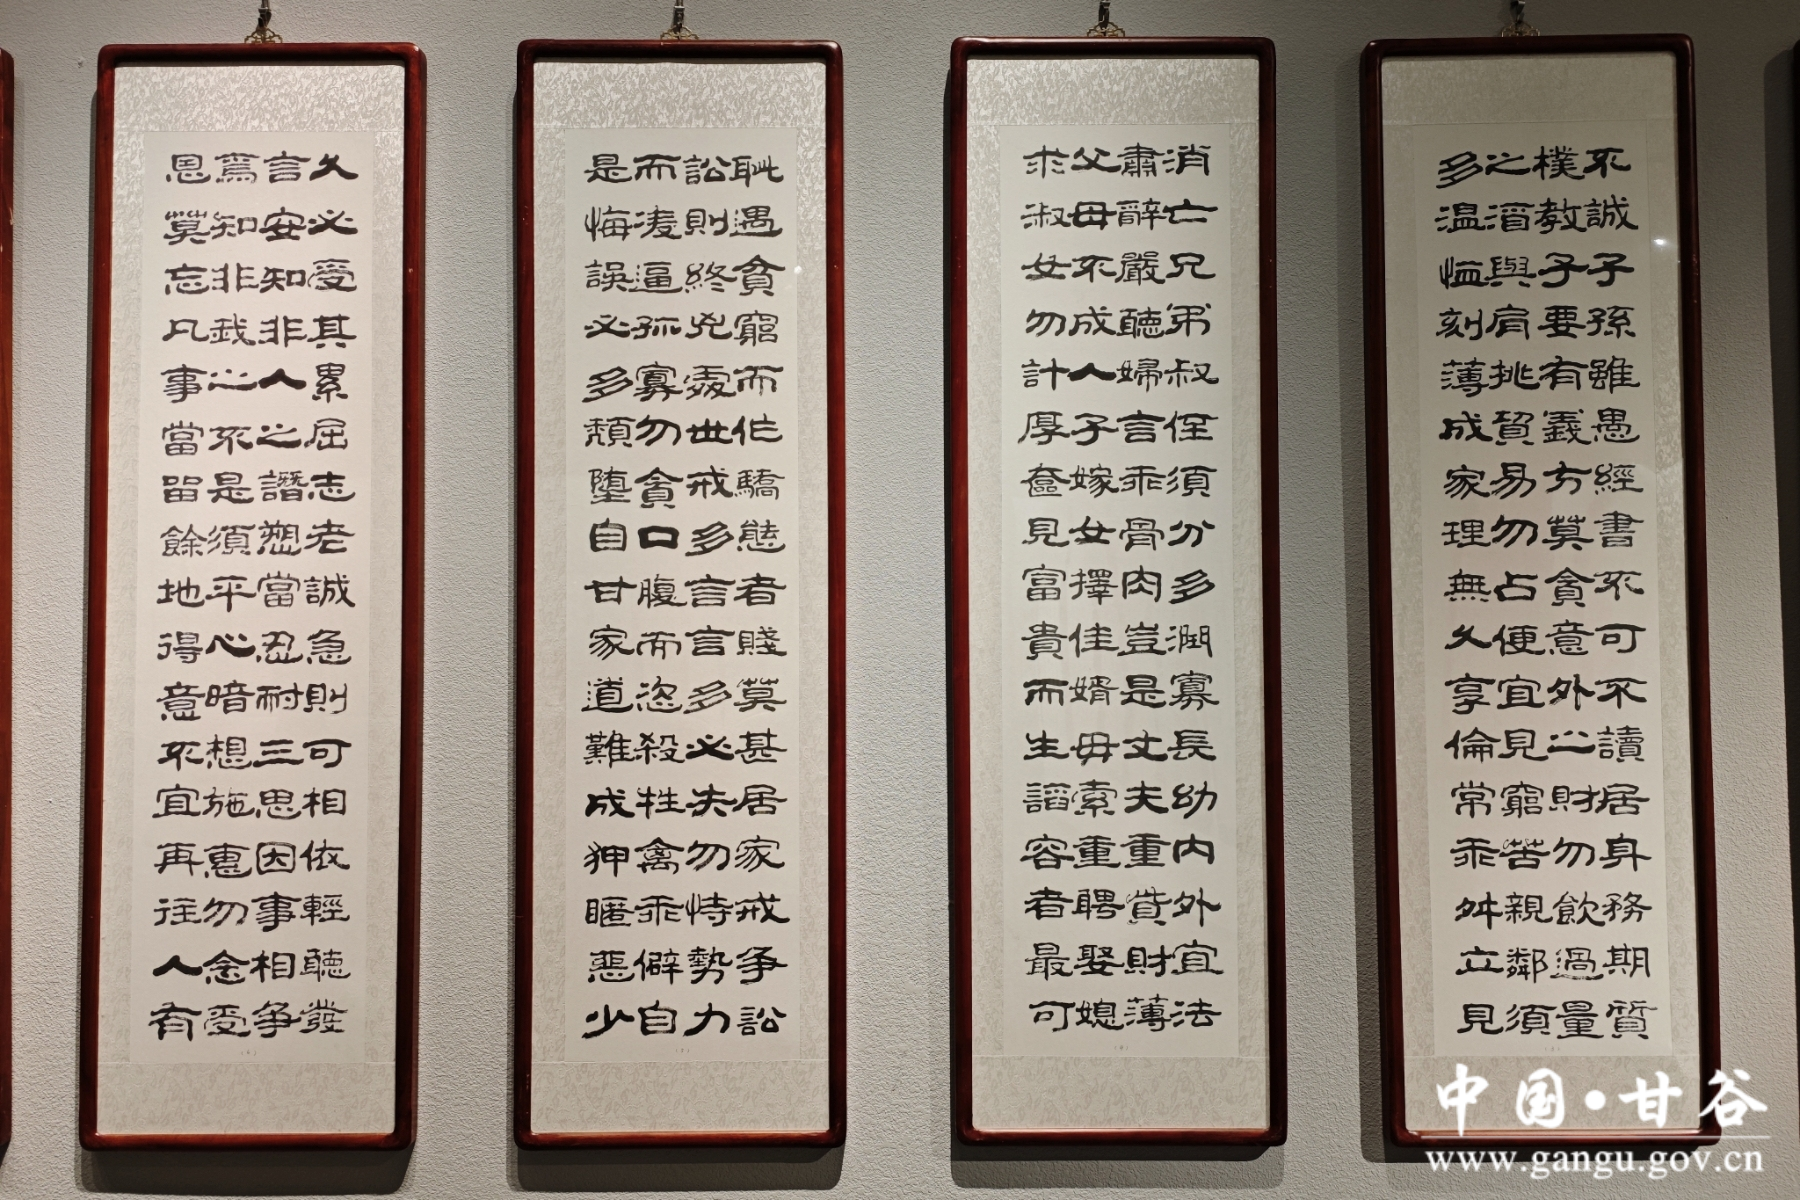 不誠子孫雖愚經書不可不讀居身務期質
樸教子要有義方莫貪意外之財勿飲過量
之酒與肩挑貿易勿占便宜見窮苦親鄰須
多温恤刻薄成家理無久享倫常乖舛立見
消亡兄弟叔侄須分多潤寡長幼内外宜法
肅辭嚴聽婦言乖骨肉豈是丈夫重貲財薄
父母不成人子嫁女擇佳婿毋索重聘娶媳
求淑女勿計厚奩見富貴而生諂容者最可
耻遇貧窮而作驕態者賤莫甚居家戒争訟
訟則終凶處世戒多言言多必失勿恃勢力
而凌逼孤寡勿貪口腹而恣殺牲禽乖僻自
是悔誤必多頹墮自甘家道難成狎暱惡少
久必受其累屈志老誠急則可相依輕聽發
言安知非人之譖愬當忍耐三思因事相争
焉知非我之不是須平心暗想施惠勿念受
恩莫忘凡事當留餘地得意不宜再往人有
中国·甘谷
www.gangu.gov.cn